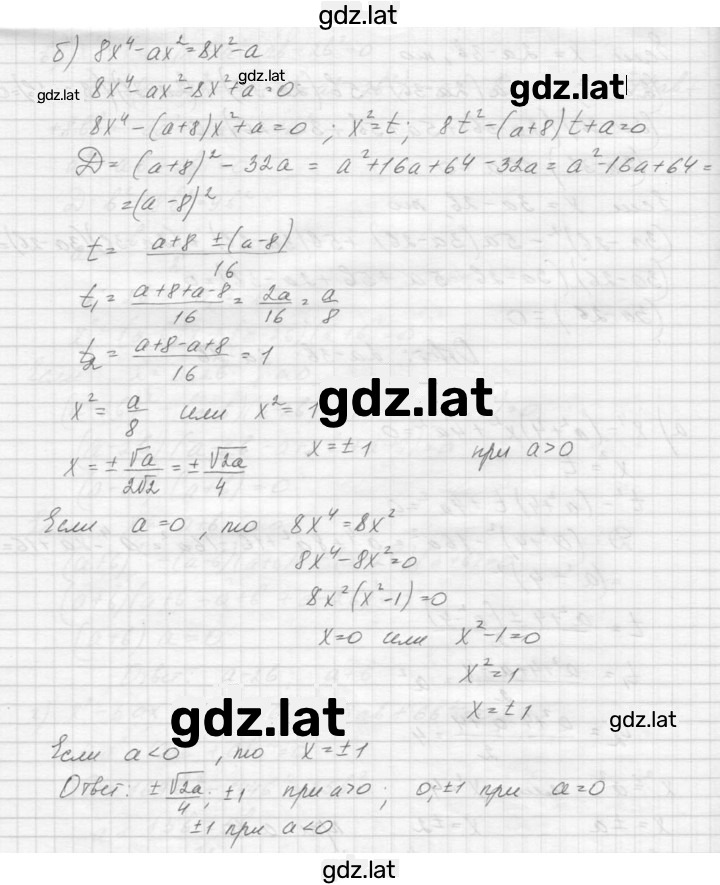 gdz.lat
б) 8x⁴-ax²=8x²-a
gdz.lat 8x⁴-ax²-8x²+a=0 gdz.lat
8x⁴-(a+8)x²+a=0; x²=t; 8t²-(a+8)t+a=0
Д=(a+8)²-32a = a²+16a+64-32a=a²-16a+64=
=(a-8)²
t= (a+8±(a-8))/16
t₁= (a+8+a-8)/16 = 2a/16 = a/8
t₂= (a+8-a+8)/16 =1
x²= a/8 или x²=1 gdz.lat
x=± √a/2√2 =± √2a/4 x=±1 при a>0
Если a=0, то 8x⁴=8x²
8x⁴-8x²=0
8x²(x²-1)=0
x=0 или x²-1=0
x²=1
gdz.lat x=±1 gdz.lat
Если a<0, то x=±1
Ответ: ± √2a/4; ±1 при a>0; 0; ±1 при a=0
±1 при a<0
gdz.lat